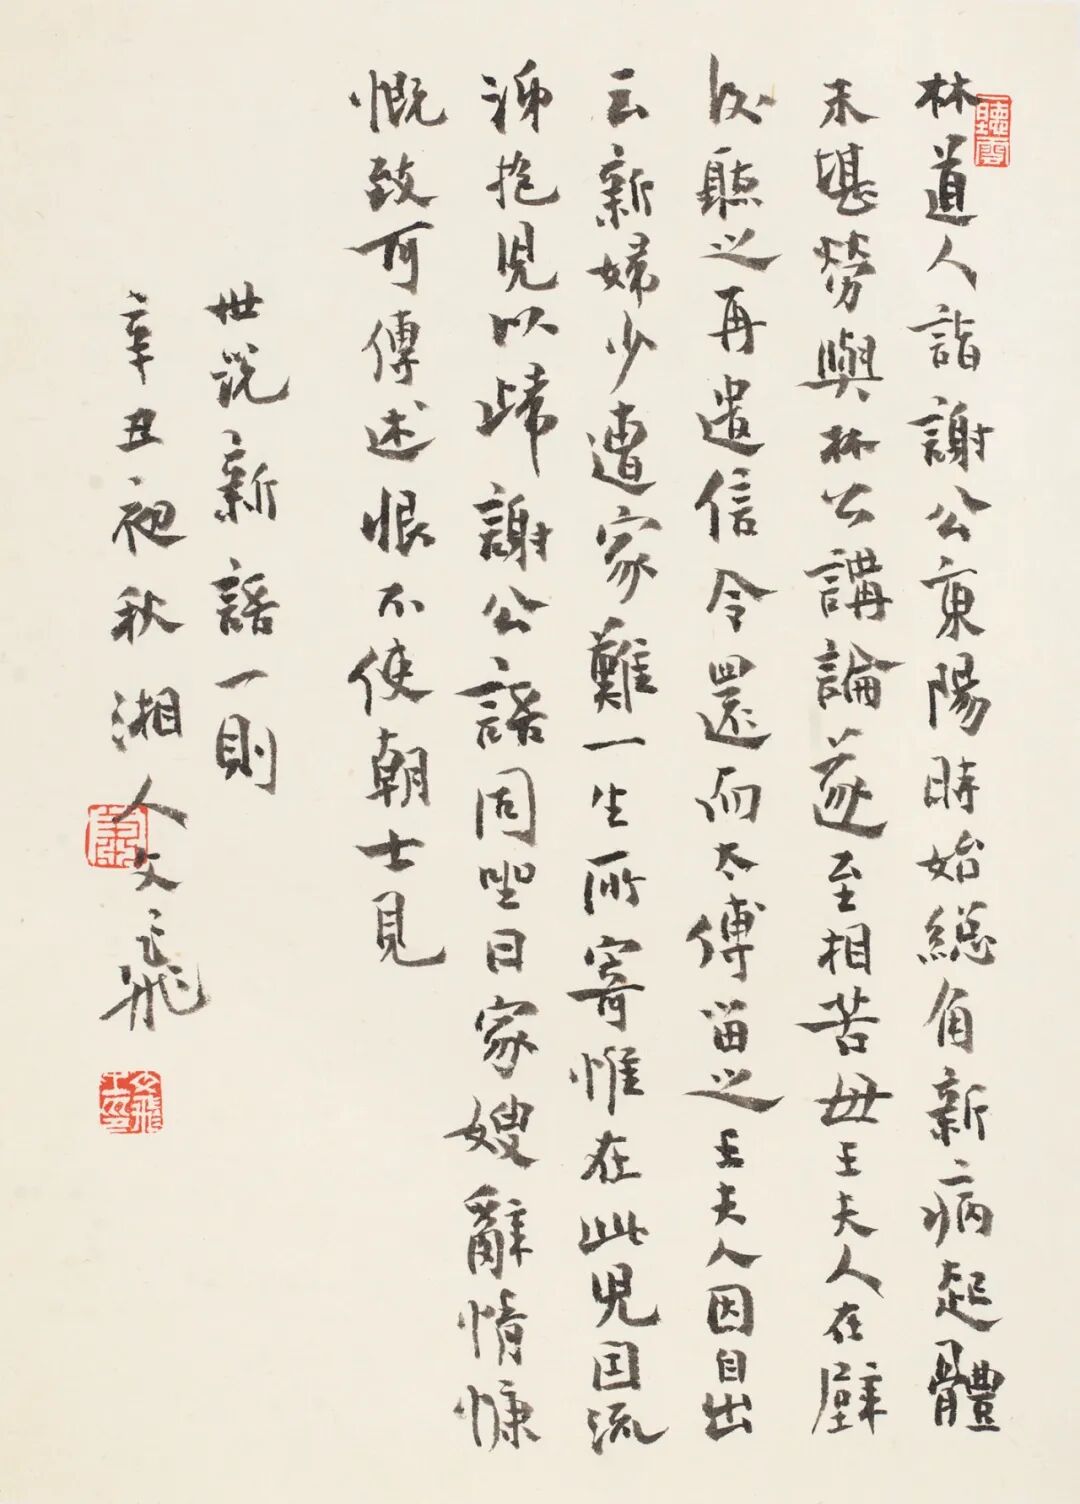 林道人詣謝公東陽時始総角新病起體
未堪勞與林公講論遂至相苦母王夫人在壁
後聽之再遣信令還而太傅留之王夫人因自出
云新婦少遭家難一生所寄惟在此兒因流
涕抱兒以歸謝公語同坐曰家嫂辭情慷
慨致可傳述恨不使朝士見
世說新語一則
辛丑初秋湘人文飛